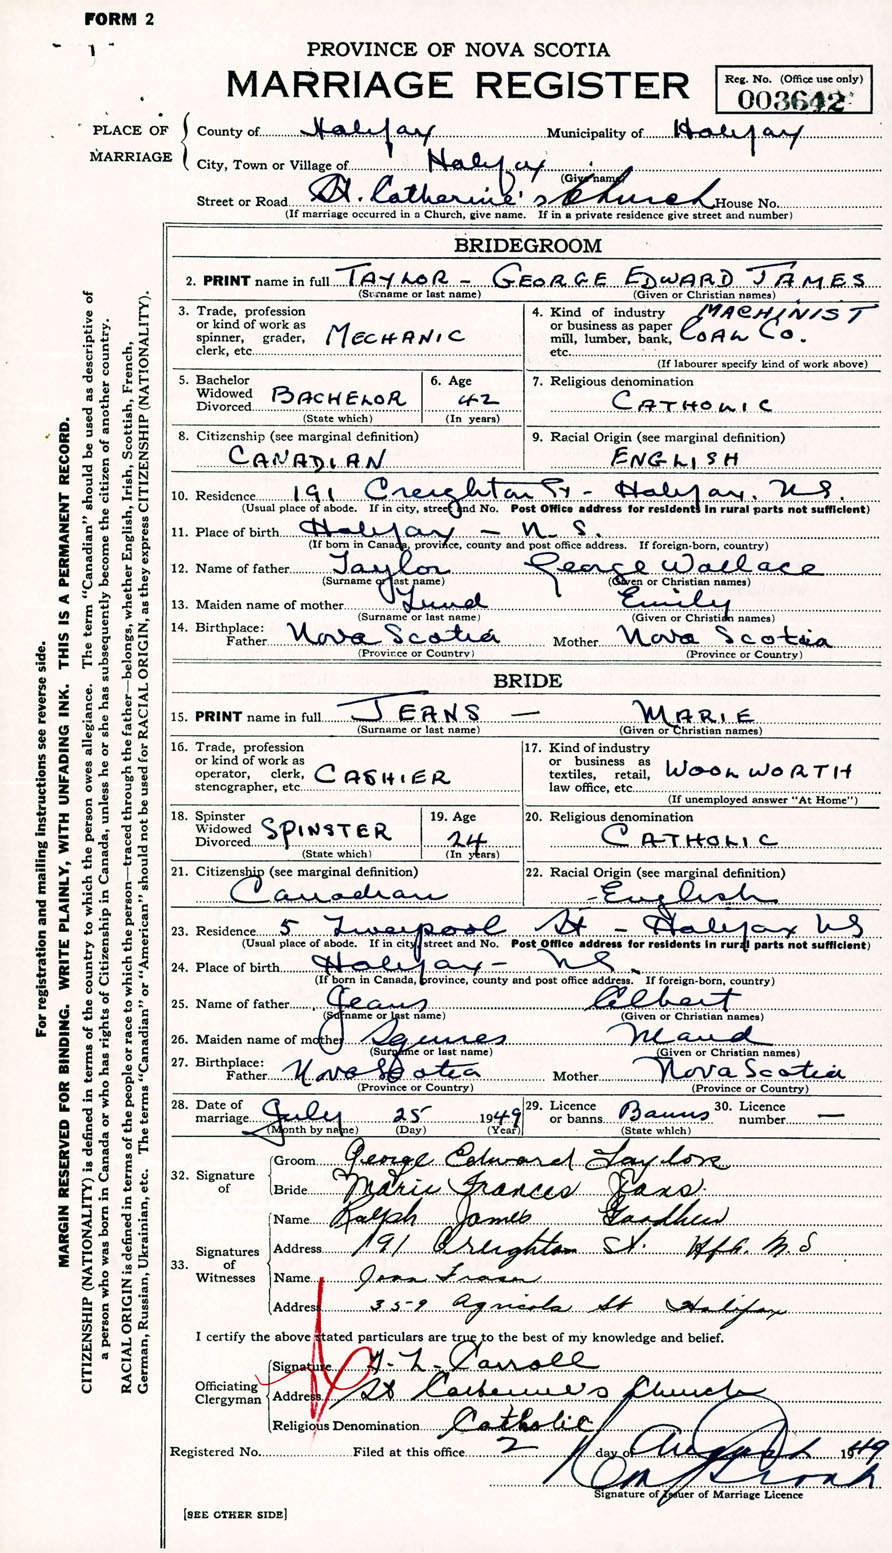 FORM 2
PROVINCE OF NOVA SCOTIA
MARRIAGE REGISTER
Reg. No. (Office use only)
003642
PLACE OF MARRIAGE
County of Halifax Municipality of Halifax
City, Town or Village of Halifax
(Give name)
Street or Road St. Catherine's Church House No.
(If marriage occurred in a Church, give name. If in a private residence give street and number)
BRIDEGROOM
2. PRINT name in full TAYLOR - GEORGE EDWARD JAMES
(Surname or last name) (Given or Christian names)
3. Trade, profession or kind of work as spinner, grader, clerk, etc. MECHANIC
4. Kind of industry or business as paper mill, lumber, bank, etc. MACHINIST COAL CO.
(If labourer specify kind of work above)
5. Bachelor Widowed Divorced BACHELOR
(State which)
6. Age 42
(In years)
7. Religious denomination
CATHOLIC
8. Citizenship (see marginal definition)
CANADIAN
9. Racial Origin (see marginal definition)
ENGLISH
10. Residence 191 Creighton St - Halifax. N.S.
(Usual place of abode. If in city, street and No. Post Office address for residents in rural parts not sufficient)
11. Place of birth Halifax - N.S.
(If born in Canada, province, county and post office address. If foreign-born, country)
12. Name of father Taylor George Wallace
(Surname or last name) (Given or Christian names)
13. Maiden name of mother Lund Emily
(Surname or last name) (Given or Christian names)
14. Birthplace: Father Nova Scotia Mother Nova Scotia
(Province or Country) (Province or Country)
BRIDE
15. PRINT name in full JEANS - MARIE
(Surname or last name) (Given or Christian names)
16. Trade, profession or kind of work as operator, clerk, stenographer, etc. CASHIER
17. Kind of industry or business as textiles, retail, law office, etc. WOOLWORTH
(If unemployed answer "At Home")
18. Spinster Widowed Divorced SPINSTER
(State which)
19. Age 24
(In years)
20. Religious denomination
CATHOLIC
21. Citizenship (see marginal definition)
Canadian
22. Racial Origin (see marginal definition)
English
23. Residence 5 Liverpool St - Halifax NS
(Usual place of abode. If in city street and No. Post Office address for residents in rural parts not sufficient)
24. Place of birth Halifax - N.S.
(If born in Canada, province, county and post office address. If foreign-born, country)
25. Name of father Jeans Albert
(Surname or last name) (Given or Christian names)
26. Maiden name of mother Squires Maud
(Surname or last name) (Given or Christian names)
27. Birthplace: Father Nova Scotia Mother Nova Scotia
(Province or Country) (Province or Country)
28. Date of marriage July 25 1949
(Month by name) (Day) (Year)
29. Licence or banns Banns
(State which)
30. Licence number —
32. Signature of
Groom George Edward Taylor
Bride Marie Frances Jeans.
33. Signatures of Witnesses
Name Ralph James Goodhew
Address 191 Creighton St. Hfx. N.S
Name Joan Fraser
Address 359 Agricola St Halifax
I certify the above stated particulars are true to the best of my knowledge and belief.
Officiating Clergyman
Signature Carroll
Address St Catherine's Church
Religious Denomination Catholic
Registered No. Filed at this office 2 day of August 1949
Signature of Issuer of Marriage Licence
[SEE OTHER SIDE]
For registration and mailing instructions see reverse side.
MARGIN RESERVED FOR BINDING. WRITE PLAINLY, WITH UNFADING INK. THIS IS A PERMANENT RECORD.
CITIZENSHIP (NATIONALITY) is defined in terms of the country to which the person owes allegiance. The term "Canadian" should be used as descriptive of
a person who was born in Canada or who has rights of Citizenship in Canada, unless he or she has subsequently become the citizen of another country.
RACIAL ORIGIN is defined in terms of the people or race to which the person—traced through the father—belongs, whether English, Irish, Scottish, French,
German, Russian, Ukrainian, etc. The terms "Canadian" or "American" should not be used for RACIAL ORIGIN, as they express CITIZENSHIP (NATIONALITY).